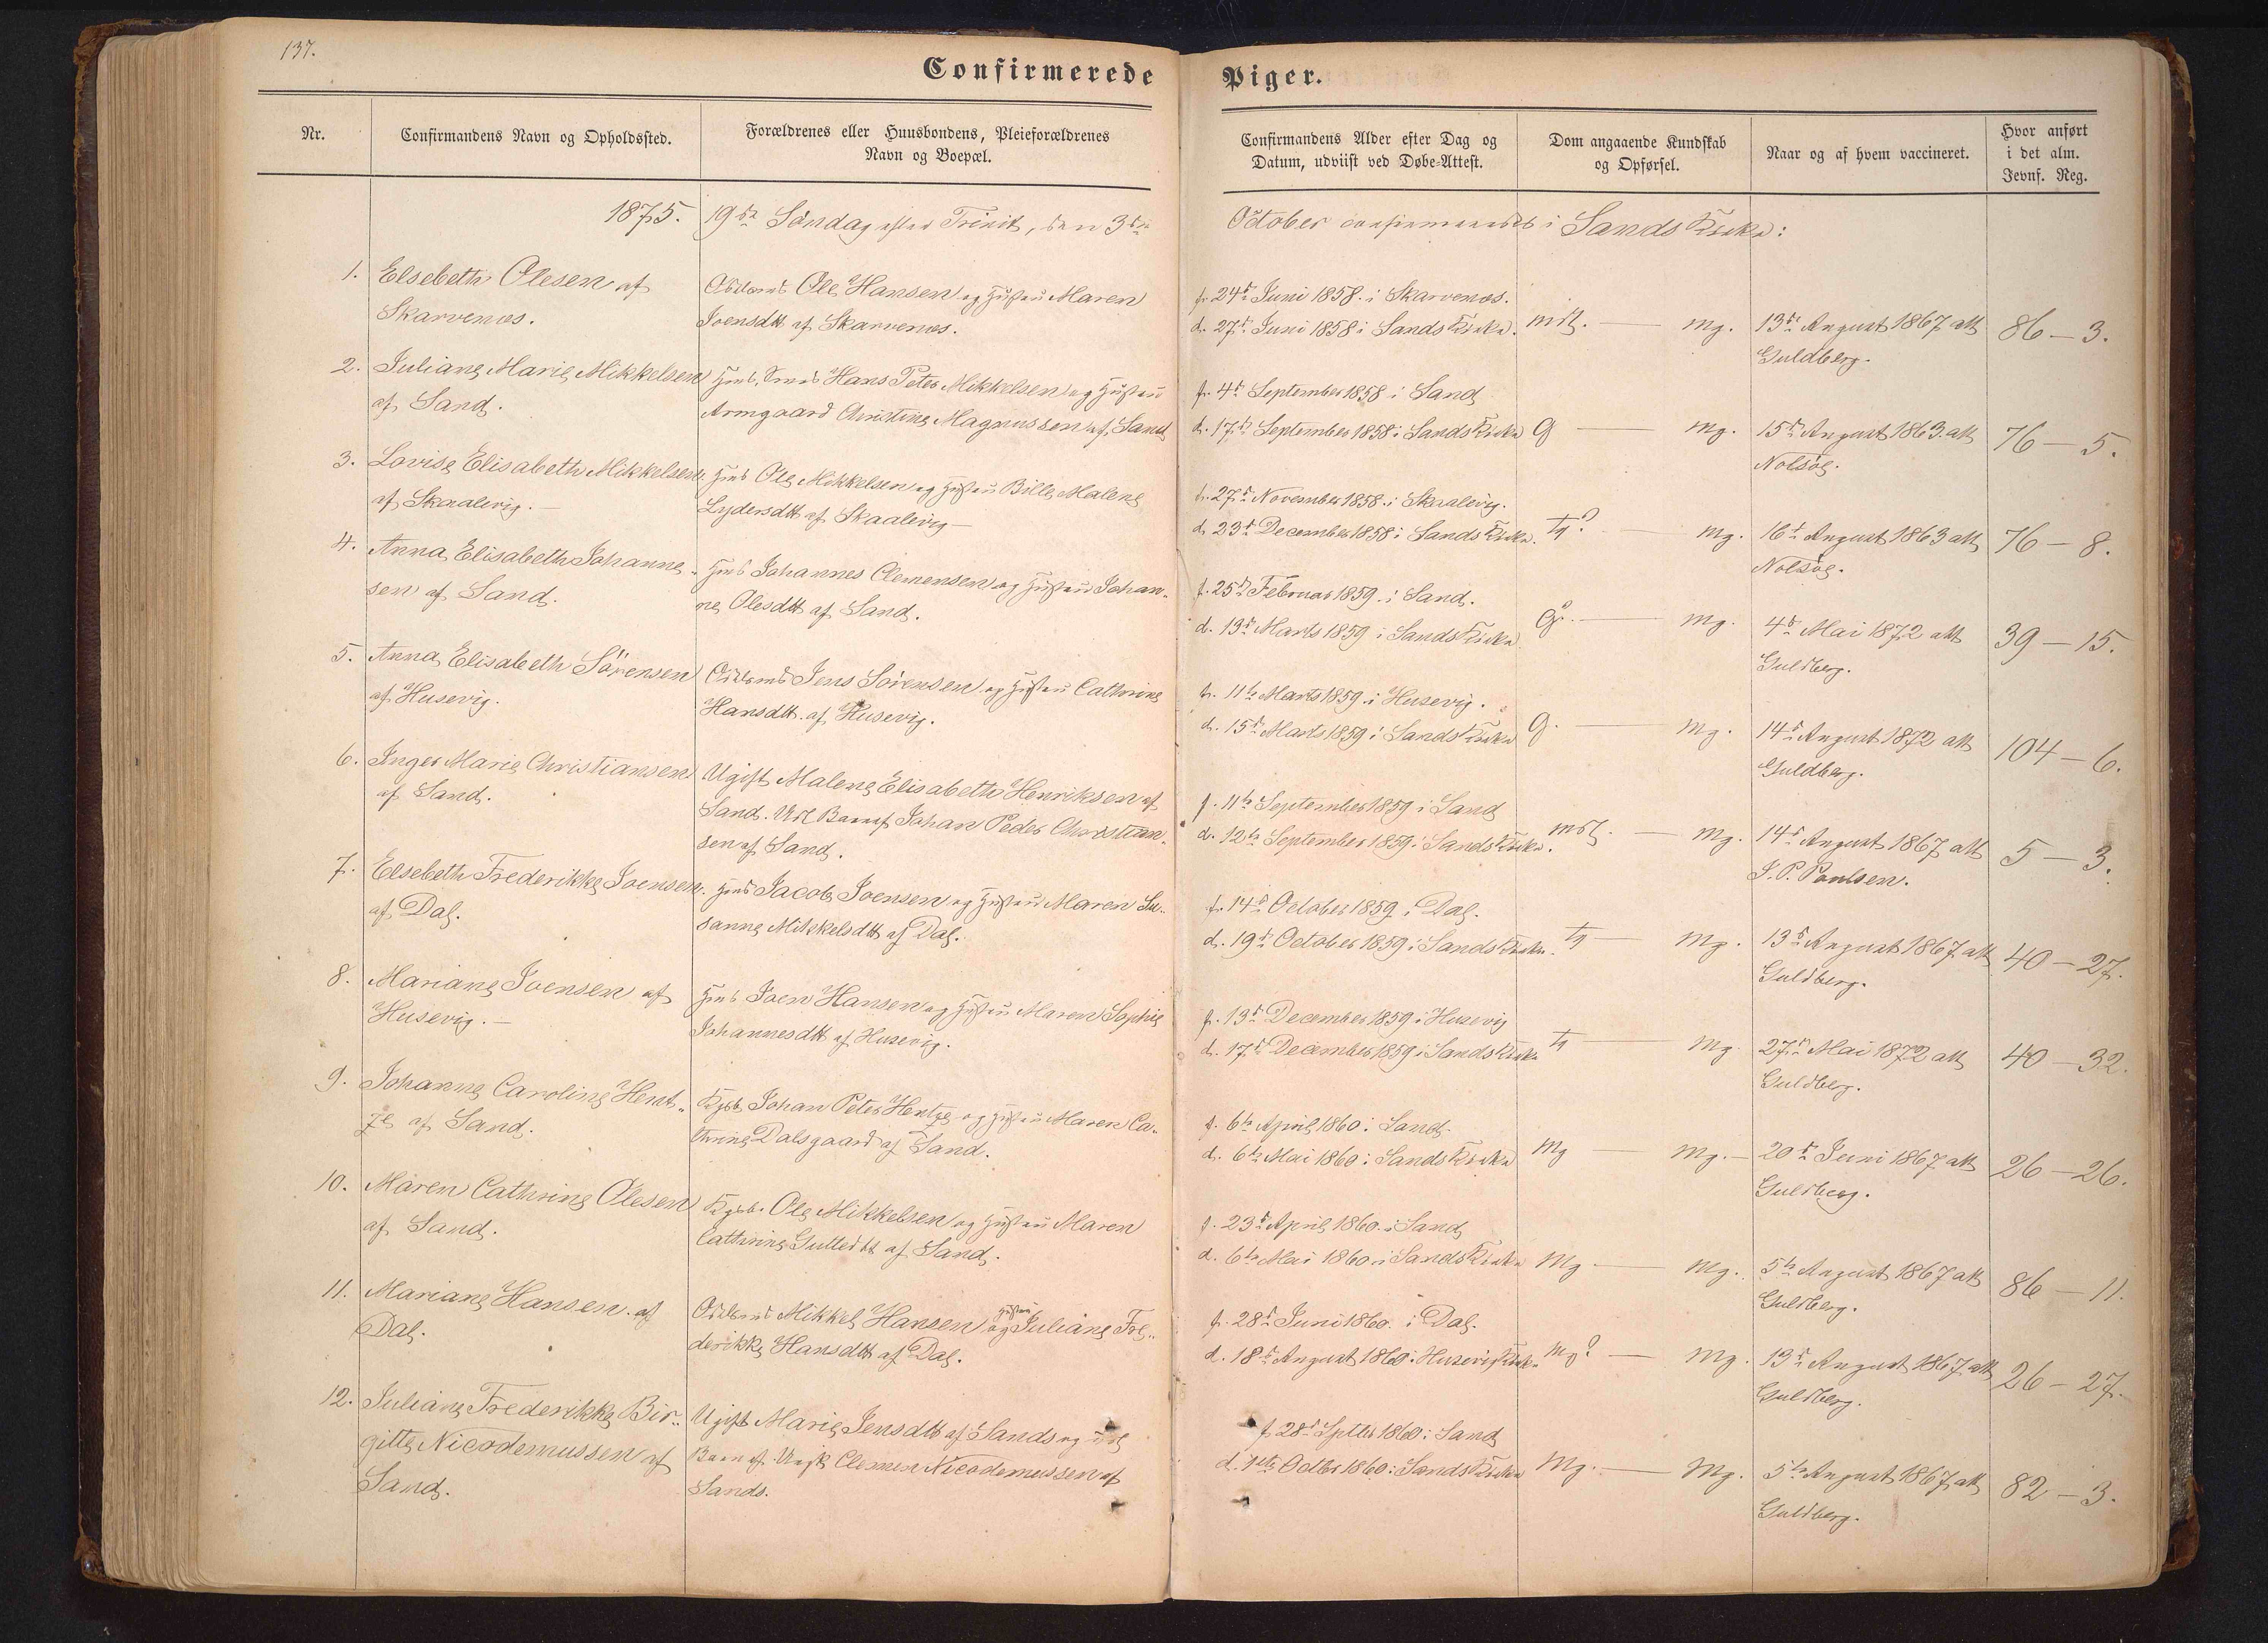 137.
Confirmerede Piger.
Nr.
Confirmandens Navn og Opholdssted.
Forældrenes eller Huusbondens, Pleieforældrenes
Navn og Boepæl.
Confirmandens Alder efter Dag og
Datum, udviist ved Døbe-Attest.
Dom angaaende Kundskab
og Opførsel.
Naar og af hvem vaccineret.
Hvor anført
i det alm.
Jevnf. Reg.
1875. 19de Söndag efter Trinit, den 3die October confirmeredes i Sands Kirke:
1. Elsebeth Olesen af
Skarvenæs.
Ole Hansen og Hustru Maren
Joensdtt af Skarvenæs.
f. 24de Juni 1858. i Skarvenæs.
d. 27de Juni 1858 i Sands Kirke.
mdl. — mg.
13de August 1867 att
Guldberg.
86 — 3.
2. Juliane Marie Mikkelsen
af Sand.
Hans Peter Mikkelsen og Hustru
Armgaard Christine Magnussen af Sand
f. 4de September 1858 i Sand
d. 17de September 1858 i Sands Kirke
g — mg.
15de August 1863. att
Nolsöe.
76 — 5.
3. Lovise Elisabeth Mikkelsen
af Skaalevig. —
Ole Mikkelsen og Hustru Bille Malene
Lydersdtt af Skaalevig —
f. 27de November 1858. i Skaalevig.
d. 23de December 1858 i Sands Kirke.
tg? — mg.
16de August 1863 att
Nolsöe.
76 — 8.
4. Anna Elisabeth Johanne-
sen af Sand.
Johannes Clemensen og Hustru Johan-
ne Olesdtt af Sand.
f. 25de Februar 1859. i Sand.
d. 13de Marts 1859 i Sands Kirke
g. — mg.
4de Mai 1872 att
Guldberg.
39 — 15.
5. Anna Elisabeth Sörensen
af Husevig.
Jens Sörensen og Hustru Cathrine
Hansdtt. af Husevig.
f. 11te Marts 1859. i Husevig.
d. 15de Marts 1859 i Sands Kirke
g. — mg.
14de August 1872 att
Guldberg.
104 — 6.
6. Inger Marie Christiansen
af Sand.
Ugift Malene Elisabeth Henriksen af
Sand. Udl Barnef. Johan Peder Christian-
sen af Sand.
f. 11te September 1859 i Sand
d. 12te September 1859 i Sands Kirke.
mdl. — mg.
14de August 1867 att
J. P. Poulsen.
5 — 3.
7. Elsebeth Frederikke Joensen
af Dal.
Jacob Joensen og Hustru Maren Su-
sanne Mikkelsdtt af Dal.
f. 14de October 1859 i Dal.
d. 19de October 1859 i Sands Kirke.
tg — mg.
13de August 1867 att
Guldberg.
40 — 27.
8. Mariane Joensen af
Husevig. —
Joen Hansen og Hustru Maren Sophie
Johannesdtt af Husevig.
f. 13de December 1859 i Husevig
d. 17de December 1859 i Sands Kirke
tg — mg
27de Mai 1872 att
Guldberg.
40 — 32.
9. Johanne Caroline Hent-
ze af Sand.
Johan Peter Hentze og Hustru Maren Ca-
thrine Dalsgaard af Sand.
f. 6te April 1860 i Sand.
d. 6te Mai 1860 i Sands Kirke
mg — mg. —
20de Juni 1867 att
Guldberg.
26 — 26.
10. Maren Cathrine Olesen
af Sand.
Ole Mikkelsen og Hustru Maren
Cathrine af Sand.
f. 23de April 1860. i Sand
d. 6te Mai 1860 i Sands Kirke
mg — mg.
5te August 1867 att
Guldberg.
86 — 11.
11. Mariane Hansen. af
Dal.
Mikkel Hansen og Hustru Juliane Fre-
derikke Hansdtt af Dal.
f. 28de Juni 1860. i Dal.
d. 18de August 1860 i Husevig Kirke
mg? — mg.
13de August 1867 att
Guldberg.
26 — 27.
12. Juliane Frederikke Bir-
gitte Nicodemussen af
Sand.
Ugift Marie Jensdtt af Sands og udl
Barnef. Ungk. Clemen Nicodemussen af
Sands.
f. 28de Septbr 1860 i Sand
d. 1ste Octbr 1860 i Sands Kirke
mg. — mg.
5te August 1867 att
Guldberg.
82 — 3.